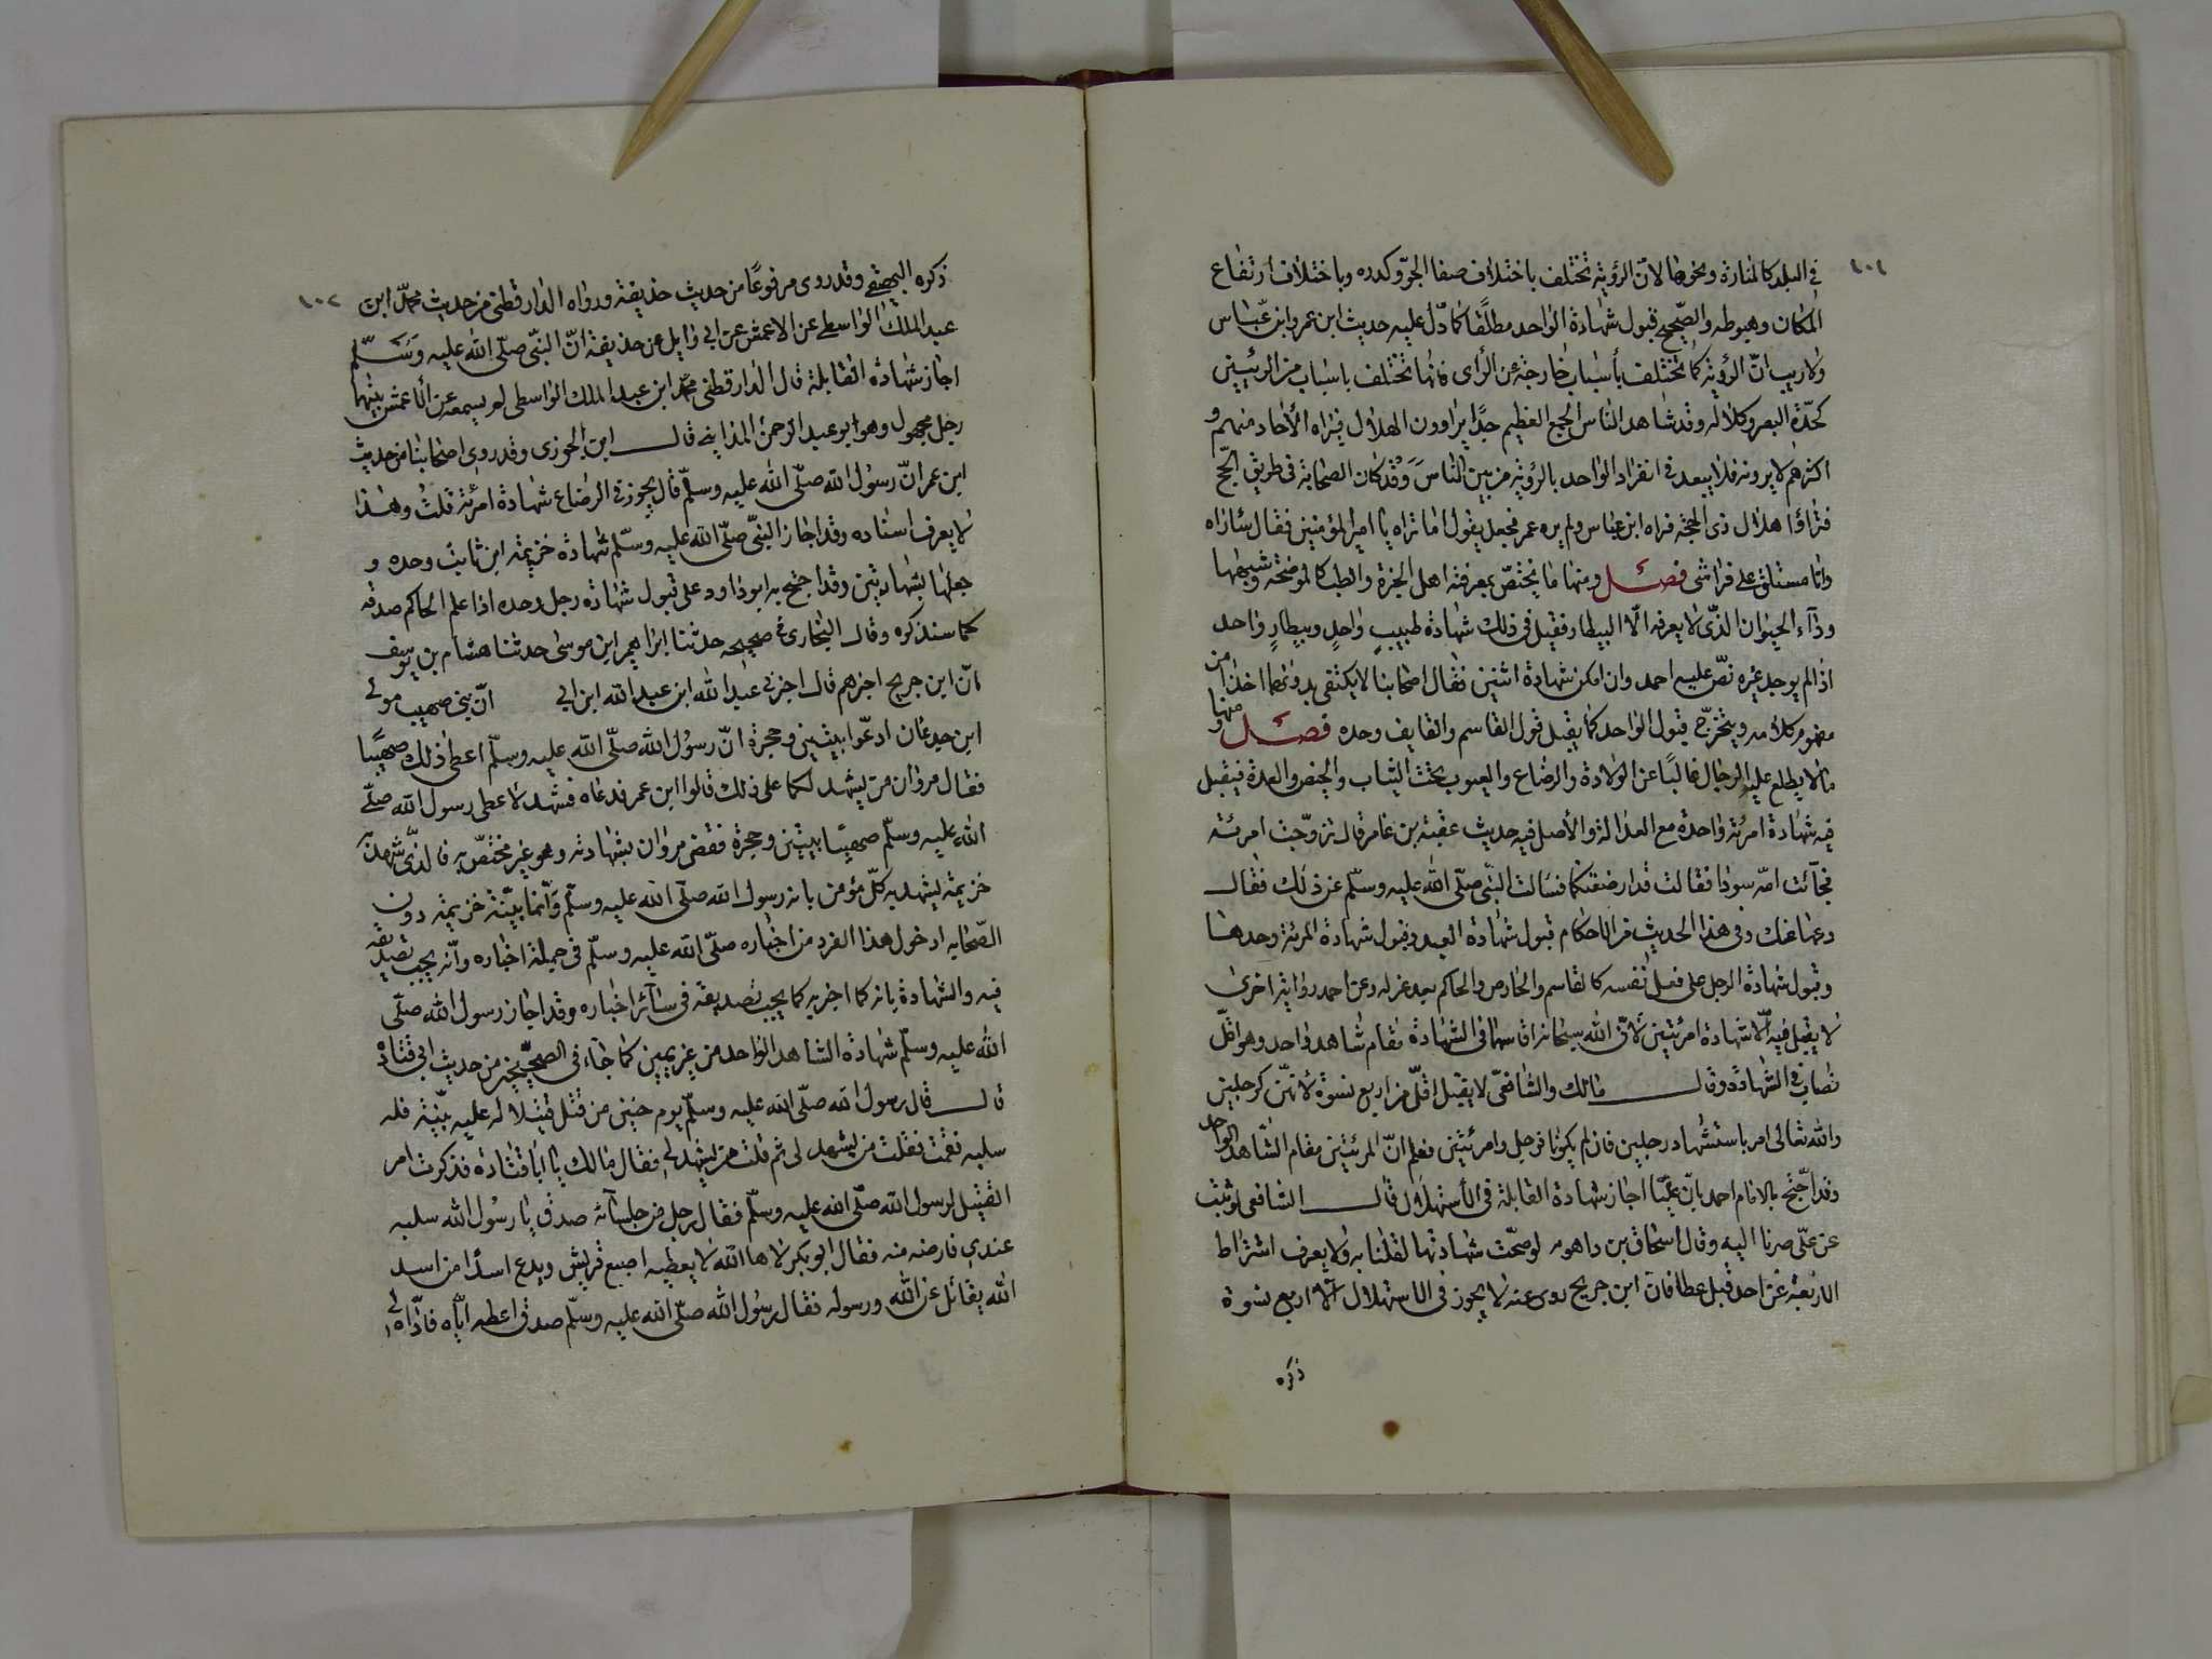 ١٠١
في البلد كالمنارة ونحوها لانّ الرؤية تختلف باختلاف صفا الجوّ وكدره وباختلاف ارتفاع
المكان وهبوطه والصّحيح قبول شهادة الواحد مطلقًا كما دلّ عليه حديث ابن عمر وابن عبّاس
ولا ريب انّ الرؤية كما تختلف بأسباب خارجة عن الرأى فانها تختلف باسباب من الرئيين
كحدّة البصر وكلاله وقد شاهد الناس الجمع العظيم جدًّا يراوون الهلال فيراه الأحاد منهم و
اكثرهم لا يرونه فلا يبعد في انفراد الواحد بالرؤية من بين الناس وقد كان الصحابة في طريق الحجّ
فتراؤا هلال ذى الحجة فراه ابن عباس ولم يره عمر فجعل يقول اما تراه يا امير المؤمنين فقال ساراه
وانا مستلق على فراشى فصل ومنها ما يختصّ بمعرفة اهل الخبرة والطب كالموضحة وشبهها
ودآء الحيوان الذّى لا يعرفه الّا البيطار فيقبل في ذلك شهادة طبيبٍ واحدٍ وبيطارٍ واحد
اذا لم يوجد غيره نصّ عليه احمد وان امكن شهادة اثنين فقال اصحابنا لا يكتفى بدونهما اخذا من
مفهوم كلامه ويتخرّج قبول الواحد كما يقبل قول القاسم والقايف وحده فصل ومنها
ما لا يطلع عليه الرجال غالبًا عن الولادة والرضاع والعيوب تحت الثياب والحيض والعدة فيقبل
فيه شهادة امرئة واحدة مع العدالة والأصل فيه حديث عقبة بن عامر قال تزوّجت امرئة
فجآئت امّه سودا فقالت قد ارضعتكما فسالت النبّى صلّى الله عليه وسلّم عن ذلك فقال
دعها عنك وفى هذا الحديث من الاحكام قبول شهادة العبد وقبول شهادة المرئة وحدها
وقبول شهادة الرجل على فعل نفسه كالقاسم والخارص والحاكم بعد عزله وعن احمد رواية اخرى
لا يقبل فيه الّا شهادة امرئتين لأنّ الله سبحانه اقامهما فى الشهادة مقام شاهد واحد وهو اقلّ
نصاب في الشهادة وقال مالك والشافعىّ لا يقبل اقلّ من اربع نسوة لأنهنّ كرجلين
والله تعالى امر باستشهاد رجلين فان لم يكونا فرجل وامرئتين فعلم انّ المرئتين مقام الشاهد الواحد
وقد احتجّ بالامام احمد بانّ عليّا اجاز شهادة القابلة في الأستهلال قال الشافعى لو ثبت
عن علّى صرنا اليه وقال اسحاق بن راهويه لو صحّت شهادتها لقلنا به ولا يعرف اشتراط
الاربعة عن احد قبل عطا فانّ ابن جريح روى عنه لا يجوز فى الاستهلال الّا اربع نسوة
ذكره
١٠٢
ذكره البيهقى وقد روى مرفوعًا من حديث حذيفة ورواه الدارقطنى من حديث محمّد ابن
عبد الملك الواسطى عن الاعمش عن ابى وايل عن حذيفة انّ النبّى صلّى الله عليه وسلّم
اجاز شهادة القابلة قال الدارقطنى محمّد ابن عبد الملك الواسطى لم يسمعه من الأعمش بينهما
رجل مجهول وهو ابو عبد الرحمن المداينى قال ابن الجوزى وقد روى اصحابنا من حديث
ابن عمر انّ رسول الله صلّى الله عليه وسلّم قال يجوز في الرضاع شهادة امرئة قلت وهذا
لا يعرف اسناده وقد اجاز النبّى صلّى الله عليه وسلّم شهادة خزيمة ابن ثابت وحده و
جعلها بشهادتين وقد احتج به ابو داود على قبول شهادة رجل وحده اذا علم الحاكم صدقه
كما سنذكره وقال البخارى في صحيحه حدثنا ابراهيم ابن موسى حدثنا هشام بن يوسف
انّ ابن جريح اخبرهم قال اخبرنى عبد الله ابن عبيد الله ابن ابى انّ بنى صهيب مولى
ابن جدعان ادعّوا بيتين وحجرة انّ رسول الله صلّى الله عليه وسلّم اعطى ذلك صهيبًا
فقال مروان من يشهد لكما على ذلك قالوا ابن عمر فدعاه فشهد لاعطى رسول الله صلّى
الله عليه وسلّم صهيبًا بيتين وحجرة فقضى مروان بشهادته وهو غير مختصّ به فالذّى شهد به
خزيمة يشهد به كلّ مؤمن بانه رسول الله صلّى الله عليه وسلّم وانّما بيّنة خزيمة دون
الصّحابه ادخول هذا الفرد من اخباره صلّى الله عليه وسلّم فى جملة اخباره وانّه يجب تصديقه
فيه والشهادة بانه كما اخبر به كما يجب تصديقه فى سآئر اخباره وقد اجاز رسول الله صلّى
الله عليه وسلّم شهادة الشاهد الواحد من غير يمين كما جآء فى الصحيحين من حديث ابى قتادة
قال قال رسول الله صلّى الله عليه وسلّم يوم حنين من قتل قتيلا له عليه بيّنة فله
سلبه فقمت فقلت من يشهد لى ثم قلت من يشهد لى فقال مالك يا ابا قتادة فذكرت امر
القتيل لرسول الله صلّى الله عليه وسلّم فقال رجل من جلسآئه صدق يا رسول الله سلبه
عندى فارضه منه فقال ابو بكر لاها الله لا يعطيه اصبع قريش ويدع اسدًا من اسد
الله يقاتل عن الله ورسوله فقال رسول الله صلّى الله عليه وسلّم صدق اعطه ايّاه فادّاه لى